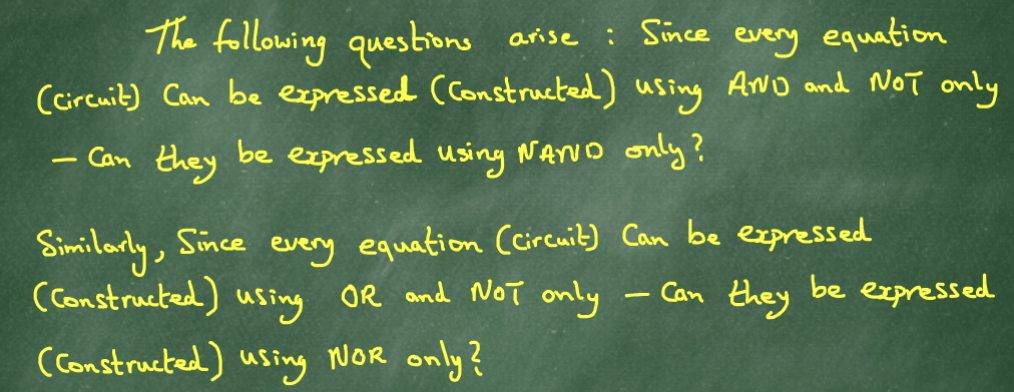 The following questions arise : Since every equation
(Circuit) Can be expressed (Constructed) using AND and NOT only
- Can they be expressed using NAND only?
Similarly, Since every equation (Circuit) Can be expressed
(Constructed) using OR and NOT only - Can they be expressed
(Constructed) using NOR only?